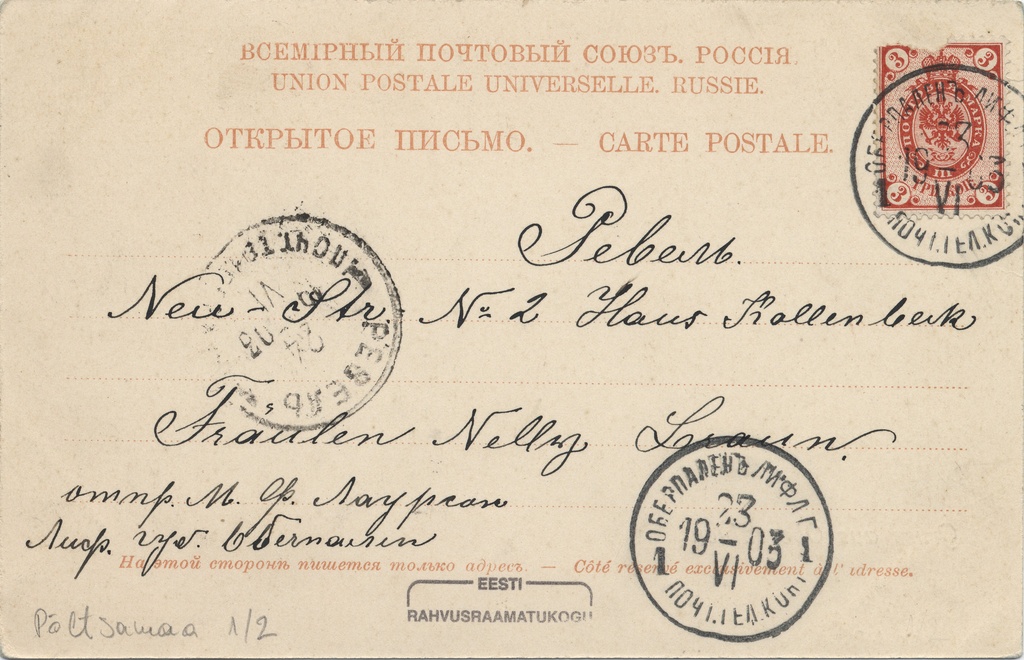 ВСЕМІРНЫЙ ПОЧТОВЫЙ СОЮЗЪ. РОССІЯ.
UNION POSTALE UNIVERSELLE. RUSSIE.
ОТКРЫТОЕ ПИСЬМО. — CARTE POSTALE.
3 3
ПОЧТОВАЯ МАРКА
ТРИ КОП
3 3
ОБЕРПАЛЕНЪ ЛИФЛ
19 VI 03
1
ПОЧТ.ТЕЛ.КОН
Ревель.
Neu-Str. № 2 Haus Kollenberk
ПОЧТ.
VI 03
РЕВЕЛЬ
Fräulen Nelly Braun.
отпр. М. Ф. Лаурсон
Лиф. губ. Оберпален
ОБЕРПАЛЕНЪ ЛИФЛ Г
23
19 — 03
VI
1 1
ПОЧТ.ТЕЛ.КОН
На этой сторонѣ пишется только адресъ. — Côté reservé exclusivement à l'adresse.
EESTI
RAHVUSRAAMATUKOGU
Põltsamaa 1/2